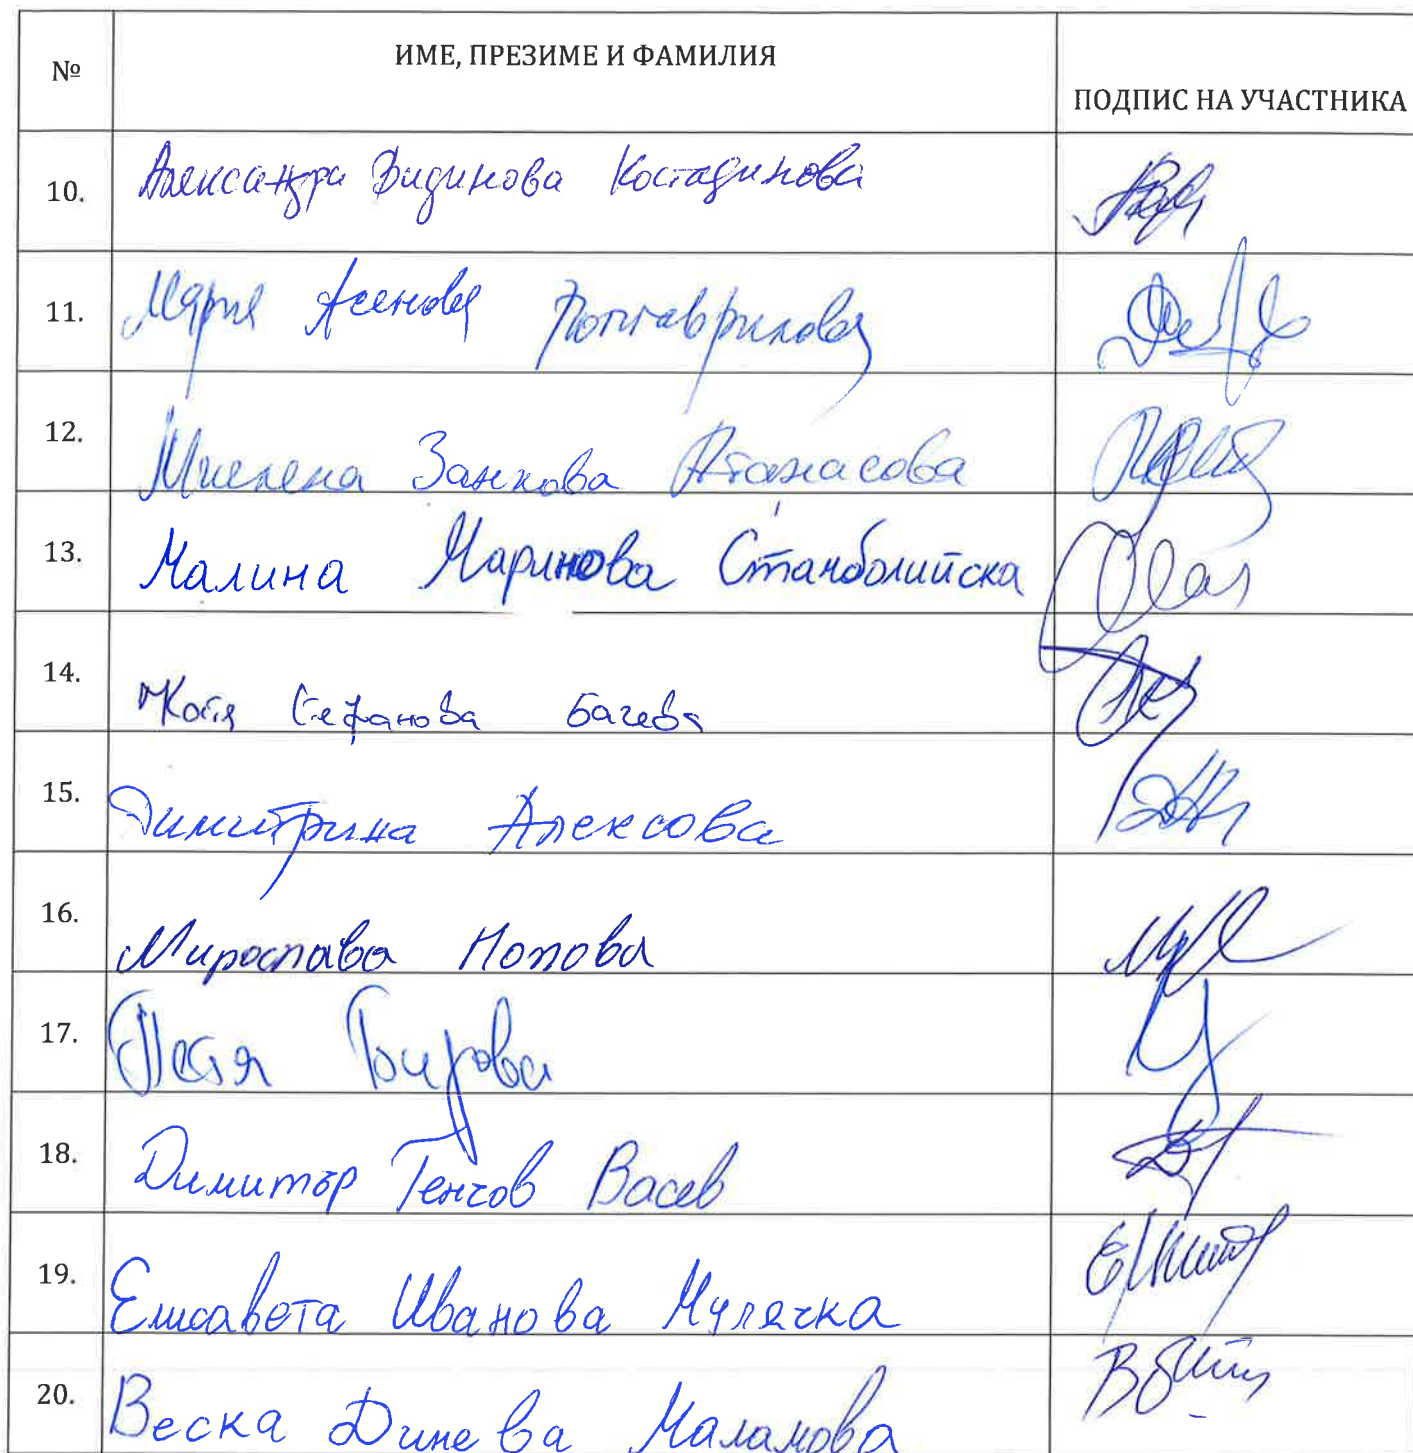 № ИМЕ, ПРЕЗИМЕ И ФАМИЛИЯ ПОДПИС НА УЧАСТНИКА
10. Александра Видинова Костадинова
11. Мария Асенова Попгаврилова
12. Милена Занкова Атанасова
13. Малина Маринова Стамболийска
14. Стефанова Багева
15. Димитрина Алексова
16. Мирослава Попова
17. Петя
18. Димитър Генчов Васев
19. Елисавета Иванова Мулячка
20. Веска Динева Маламова